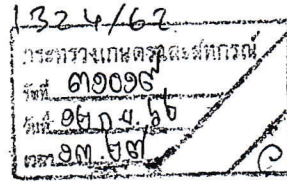 1324/62
กระทรวงเกษตรและสหกรณ์
รับที่ ๓๑๐๑๙
วันที่ ๑๒ ก.ย.
เวลา ๑๓.๒๗